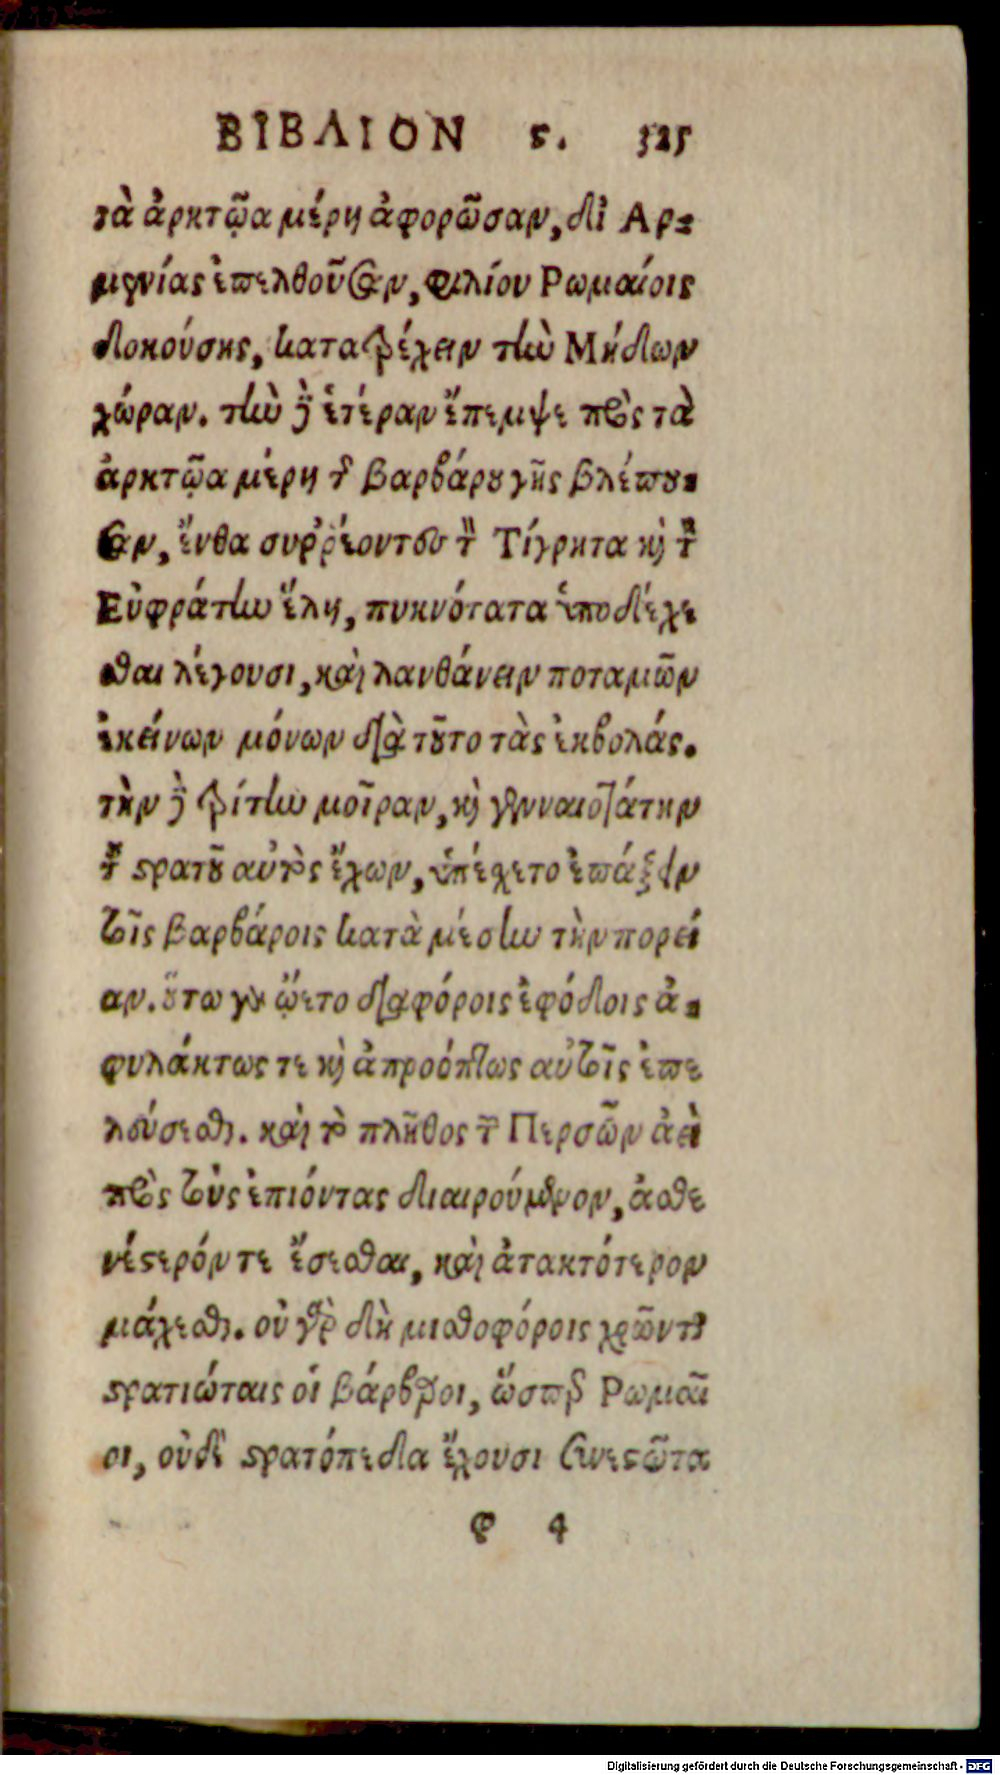 ΒΙΒΛΙΟΝ ϛ. 325
τὰ ἀρκτῷα μέρη ἀφορῶσαν, δι Αρ-
μενίας ἐπελθοῦσαν, φιλίου Ρωμαίοις
δοκούσης, κατατρέχειν τὴν Μήδων
χώραν. τὴν δὲ ἑτέραν ἔπεμψε πρὸς τὰ
ἀρκτῷα μέρη τῆς βαρβάρου γῆς βλέπου-
σαν, ἔνθα συῤῥέοντας τὸν Τίγρητα καὶ τὸν
Εὐφράτην ἕλη, πυκνότατα ὑποδέχε
σθαι λέγουσι, καὶ λανθάνειν ποταμῶν
ἐκείνων μόνων διὰ τοῦτο τὰς ἐκβολάς.
τὴν δὲ τρίτην μοῖραν, καὶ γενναιοτάτην
τοῦ στρατοῦ αὐτὸς ἔχων, ὑπέχετο ἐπάξειν
τοῖς βαρβάροις κατὰ μέσην τὴν πορεί
αν. οὕτω γὰρ ᾤετο διαφόροις ἐφόδοις ἀ-
φυλάκτως τε καὶ ἀπροόπτως αὐτοῖς ἐπε
λεύσεσθαι. καὶ τὸ πλῆθος τῶν Περσῶν ἀεὶ
πρὸς τοὺς ἐπιόντας διαιρούμενον, ἀσθε
νέστερόν τε ἔσεσθαι, καὶ ἀτακτότερον
μάχεσθαι. οὐ γὰρ δὴ μισθοφόροις χρῶνται
στρατιώταις οἱ βάρβαροι, ὥσπερ Ρωμαῖ
οι, οὐδὲ στρατόπεδα ἔχουσι συνεστῶτα
φ 4
Digitalisierung gefördert durch die Deutsche Forschungsgemeinschaft - DFG